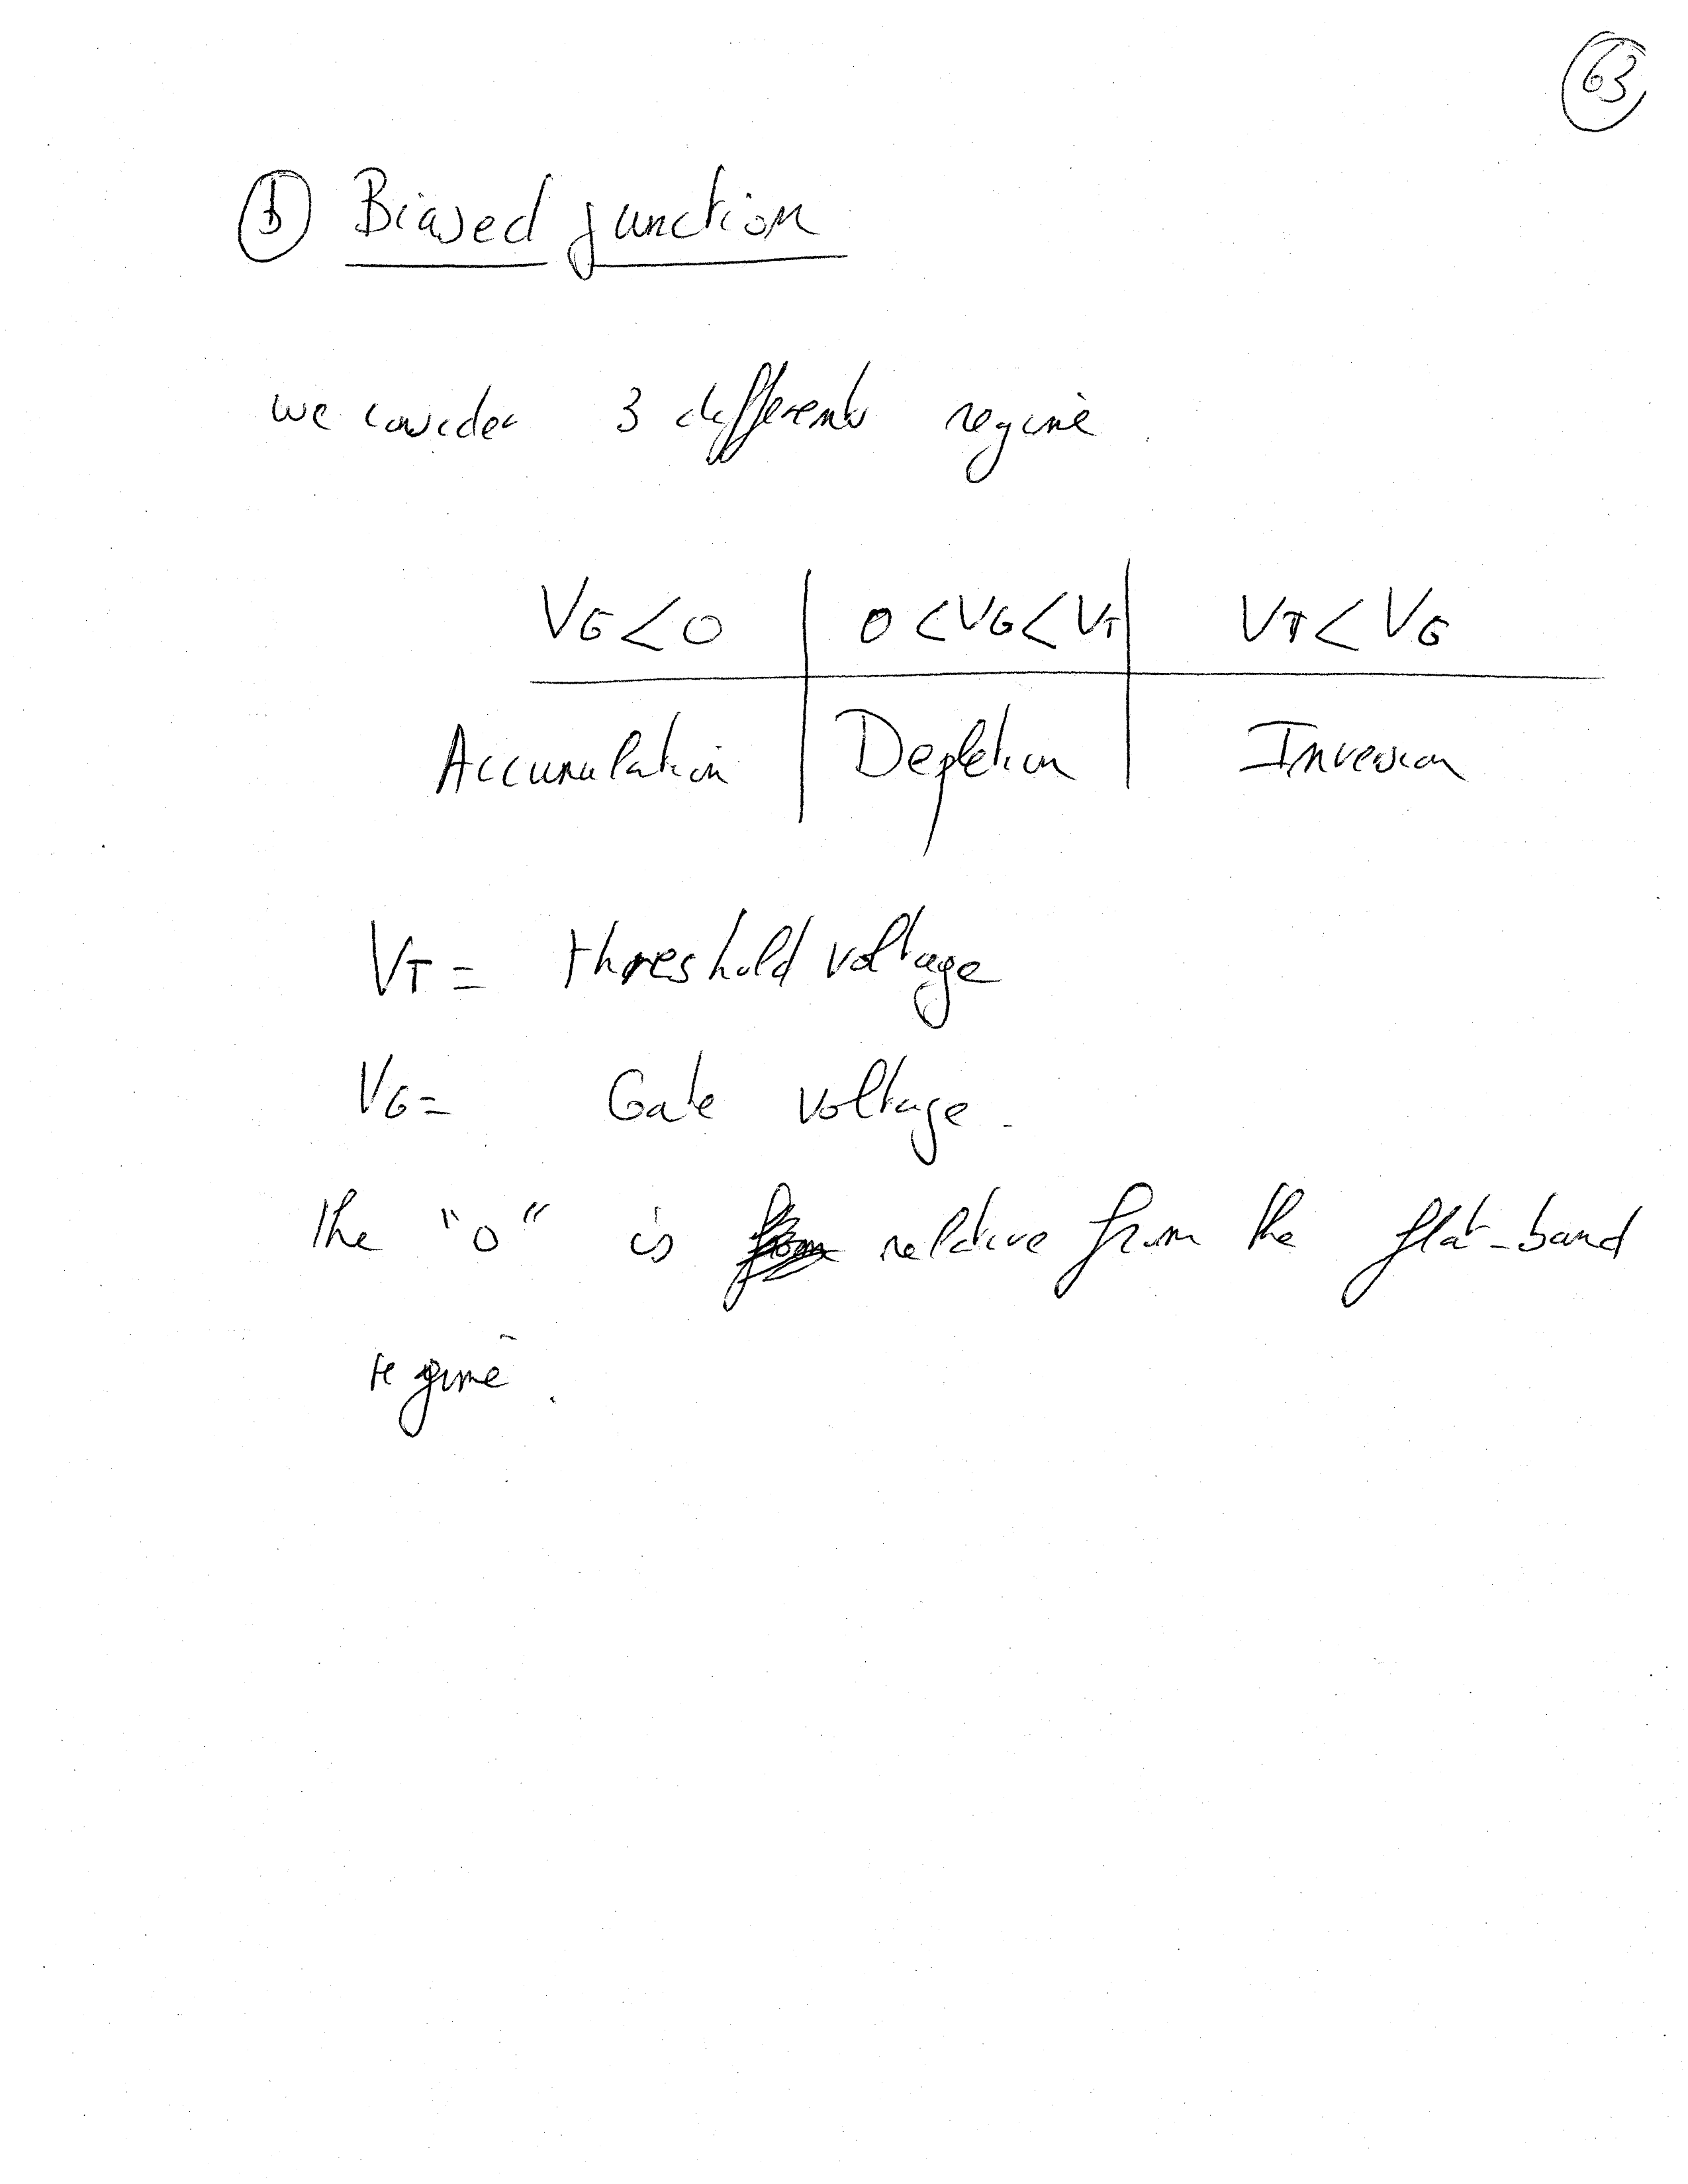 63
b Biased junction
we consider 3 differents regime.
VG < 0 | 0 < VG < VT | VT < VG
Accumulation | Depletion | Inversion
VT = threshold voltage
VG = Gate voltage.
the "0" is relative from the flat-band
regime.